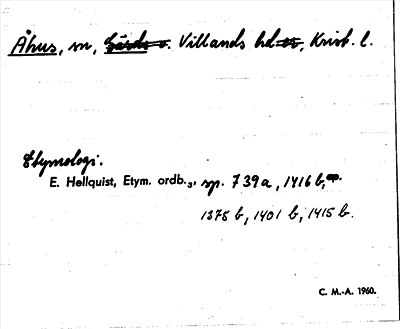 Åhus, m, Gärds o. Villands hd er, Krist. l.
Etymologi.
E. Hellquist, Etym. ordb.₃, sp. 739a, 1416 b,
1378 b, 1401 b, 1415 b.
C. M.-A. 1960.